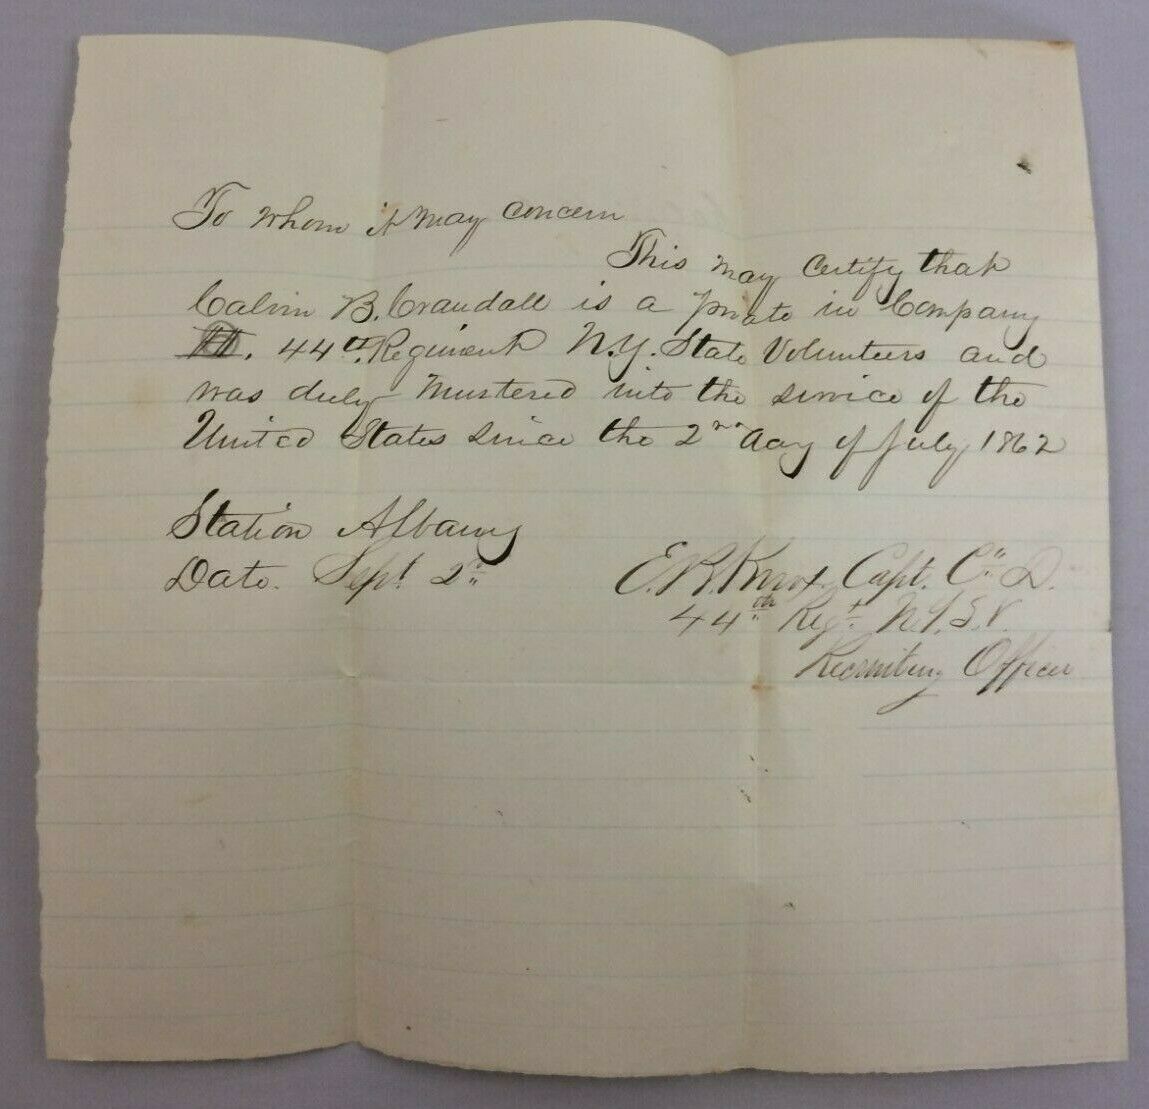 To whom it may concern
This may certify that
Calvin B. Crandall is a private in Company
44th Regiment N.Y. State Volunteers and
was duly Mustered into the service of the
United States since the 2nd day of July 1862
Station Albany
Date. Sept 2d
E. R. Knox Capt. Co D.
44th Regt N.Y.S.V.
Recruiting Officer